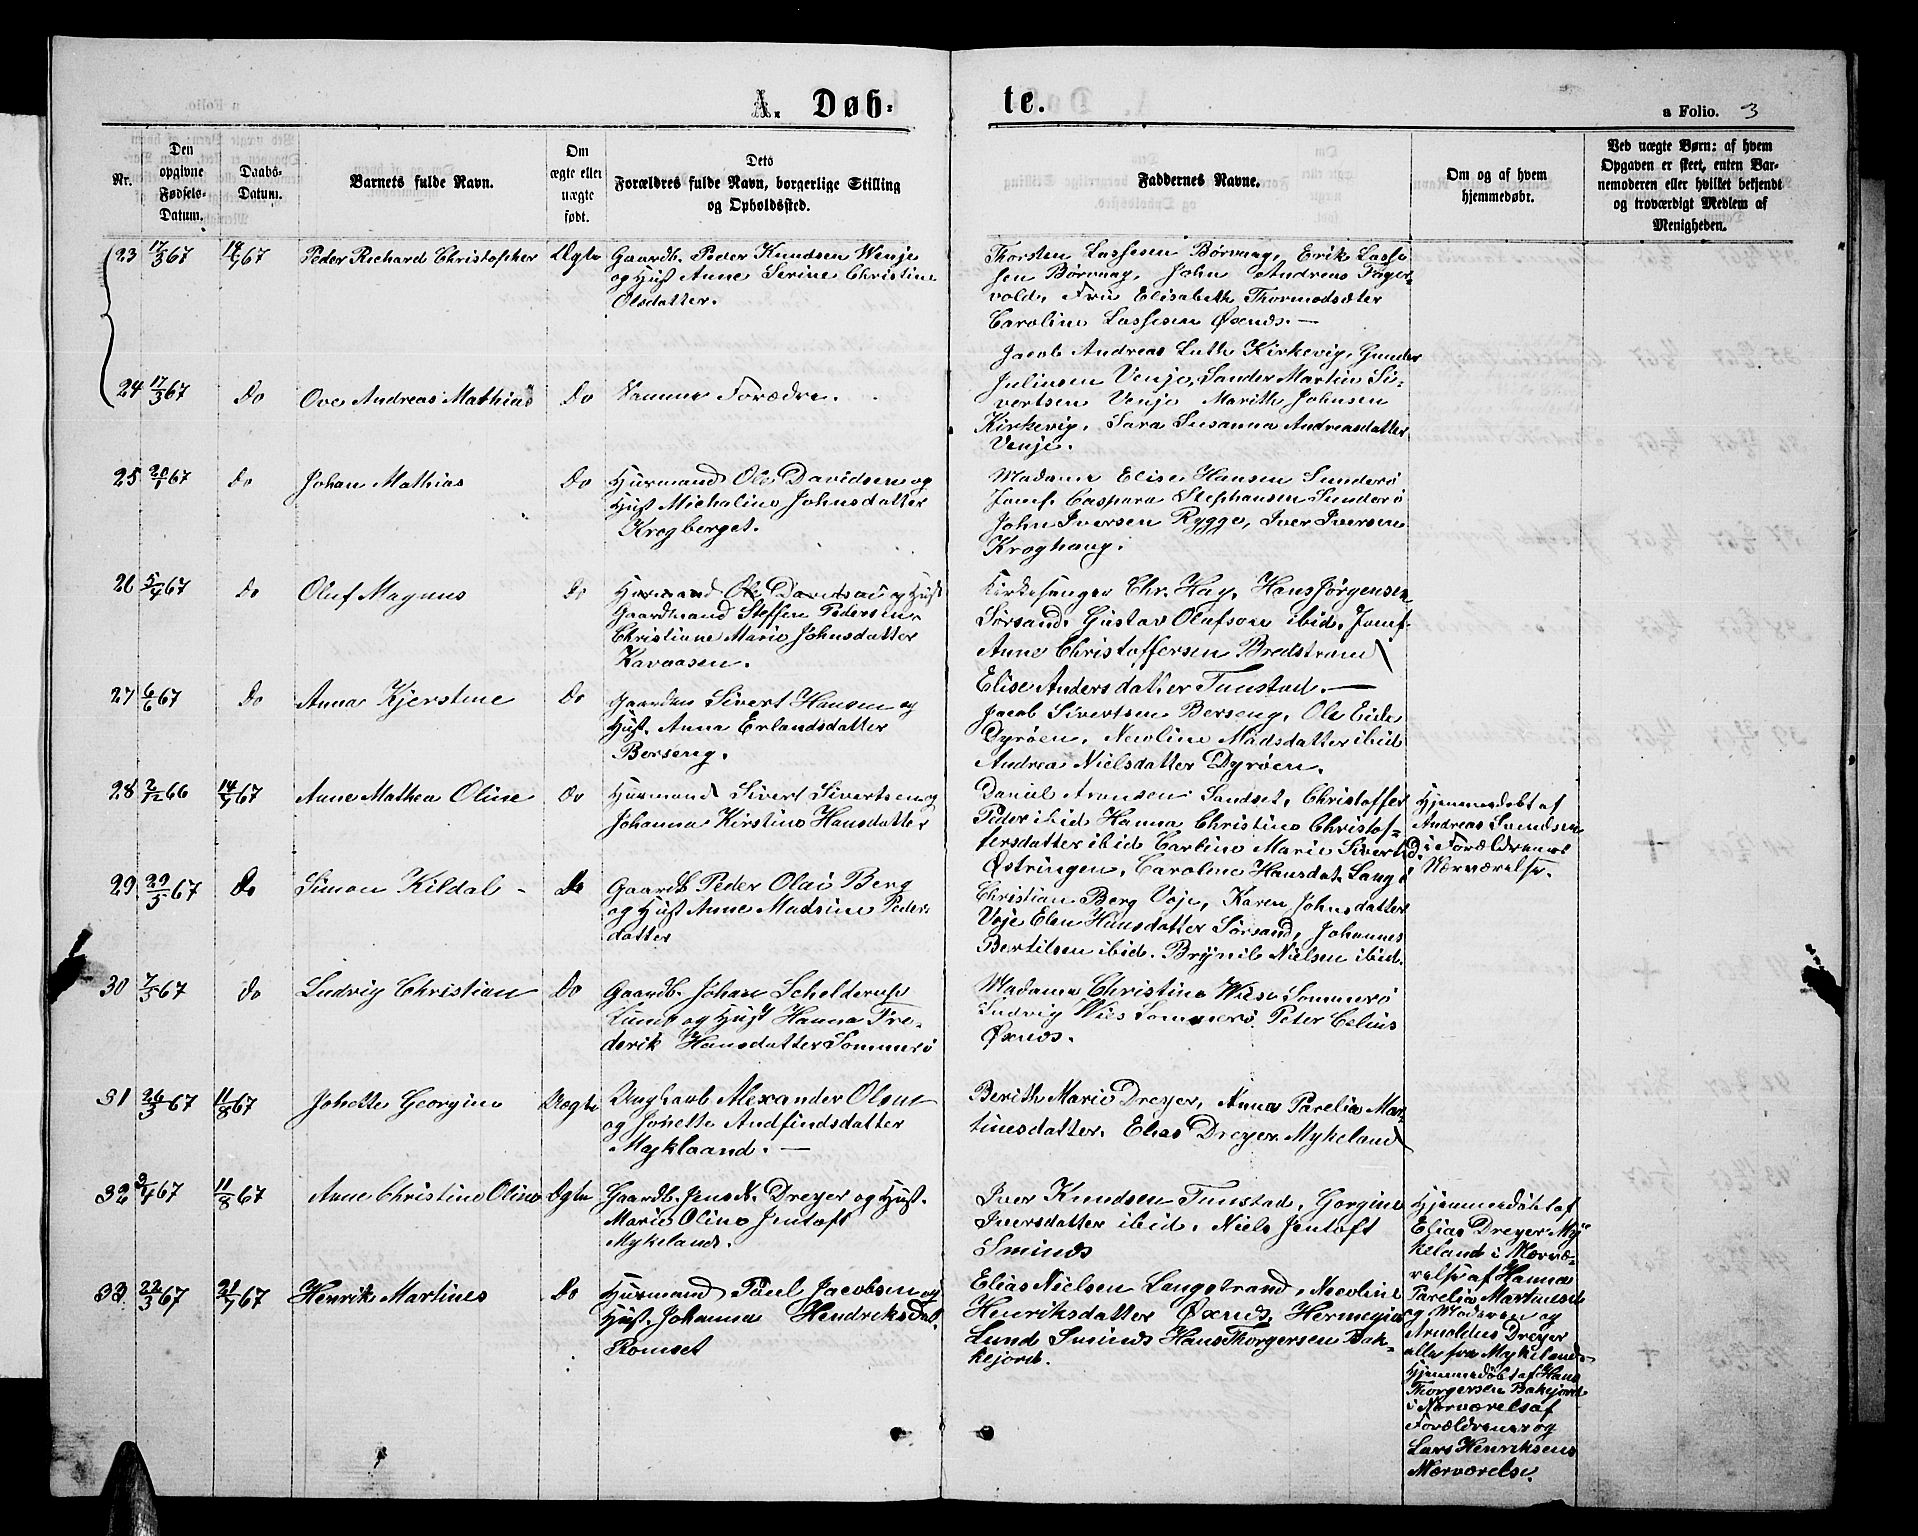 A. Døb-
te.
a Folio. 3
Nr.
Den opgivne Fødsels-Datum.
Daabs-Datum.
Barnets fulde Navn.
Om ægte eller uægte født.
Dets Forældres fulde Navn, borgerlige Stilling og Opholdssted.
Faddernes Navne.
Om og af hvem hjemmedøbt.
Ved uægte Børn: af hvem Opgaven er skeet, enten Barnemoderen eller hvilket bekjendt og troværdigt Medlem af Menigheden.
23 17/3 67 14/7 67 Peder Richard Christopher Ægte
Gaardb. Peder Knudsen Wenje
og Hust Anne Serine Christine
Olsdatter.
Thorsten Lassesen Børvaag, Erik Lasse
sen Børvaag, John Andreas Fager-
vold, Fru Elisabeth Thormodsæter
Caroline Lassesen Øxnes.—
24 17/3 67 Do Ove Andreas Mathias Do
Samme Forædre.
Jacob Andreas Luth Kirkevig, Gunder
Julinsen Venje, Sander Martin Si-
vertsen Venje Marith Johnsen
Kirkevig, Sara Susanna Andreasdatter
Venje.
25 20/1 67 Do Johan Mathias Do
Husmand Ole Davidsen og
Hust Michaline Johnsdatter
Krogberget.
Madame Elise Hansen Sunderø
Jomf. Caspara Stephansen Sunderø
John Iversen Rygge, Iver Iversen
Kroghaug.
26 5/4 67 Do Oluf Magnus Do
Husmand Ole Davidsen og Hust
Gaardmand Steffen Pedersen
Christiane Marie Johnsdatter
Kavaasen.
Kirkesanger Chr. Hay, Hans Jørgensen
Sørsand, Gustav Olufson ibid, Jomf.
Anne Christoffersen Bredstrand
27 6/6 67 Do Anna Kjerstine Do
Gaardm Sivert Hansen og
Hust. Anna Erlandsdatter
Berseng.
Elise Andersdatter Tunstad.—
Jacob Sivertsen Berseng, Ole Eide
Dyrøen, Neoline Madsdatter ibid
Andrea Nielsdatter Dyrøen.
28 2/12 66 14/7 67 Anne Mathea Oline Do
Husmand Sivert Sivertsen og
Johanna Kirstine Hansdatter
Daniel Arentsen Sandset, Christoffer
Peder ibid Hanna Christine Christof-
fersdatter ibid Carline Marie Sivertsd.
Østringen, Caroline Hansdat. Sang
Hjemmedøbt af
Andreas Svendsen
i Forældrenes
Nærværelse.
29. 29/3 67 Do Simon Kildal - Do
Gaardb Peder Olai Berg
og Hust Anne Madsine Peders
datter
Christian Berg Voje, Karen Johnsdatter
Voje Elen Hansdatter Sørsand, Johannes
Bertilsen ibid. Brynild Nielsen ibid.
30 7/3 67 Do Ludvig Christian Do
Gaardb. Johan Schelderup
Lund og Hust Hanna Fre-
derik Hansdatter Sommerø
Madame Christine Wiis Sommerø
Ludvig Wiis Sommerø. Peter Celius
Øxnes.
31 26/3 67 11/8 67 Johette Georgine Uægte
Ungkarl Alexander Olsen
og Johette Andfindsdatter
Myklaand.—
Berith Marie Dreyer, Anna Parelia Mar-
tinesdatter. Elias Dreyer Mykeland
32 3/4 67 11/8 67 Anne Christine Oline Ægte
Gaardb. Jens N. Dreyer og Hust.
Marie Oline Jentoft
Mykeland.
Iver Knudsen Tunstad, Gorgine
Iversdatter ibid, Niels Jentoft
Sminæs
Hjemmedøbt af
Elias Dreyer My
keland i Nærvæ-
relse af Hanna
Parelia Martinesd
og Moderen og
Arnoldus Dreyer
alle fra Mykeland-
33. 22/3 67 21/7 67 Henrik Martines Do
Husmand Paul Jacobsen og
Hust. Johanna Hendriksdat.
Romset
Elias Nielsen Langstrand, Nicoline
Henriksdatter Øxnes, Hermegine
Lund Sminæs Hans Thorgersen Bak-
kejord.
Hjemmedøbt af Hans
Thorgersen Bakejord
i Nærværelse af
Forældrene og
Lars Henriksens
Nærværelse.